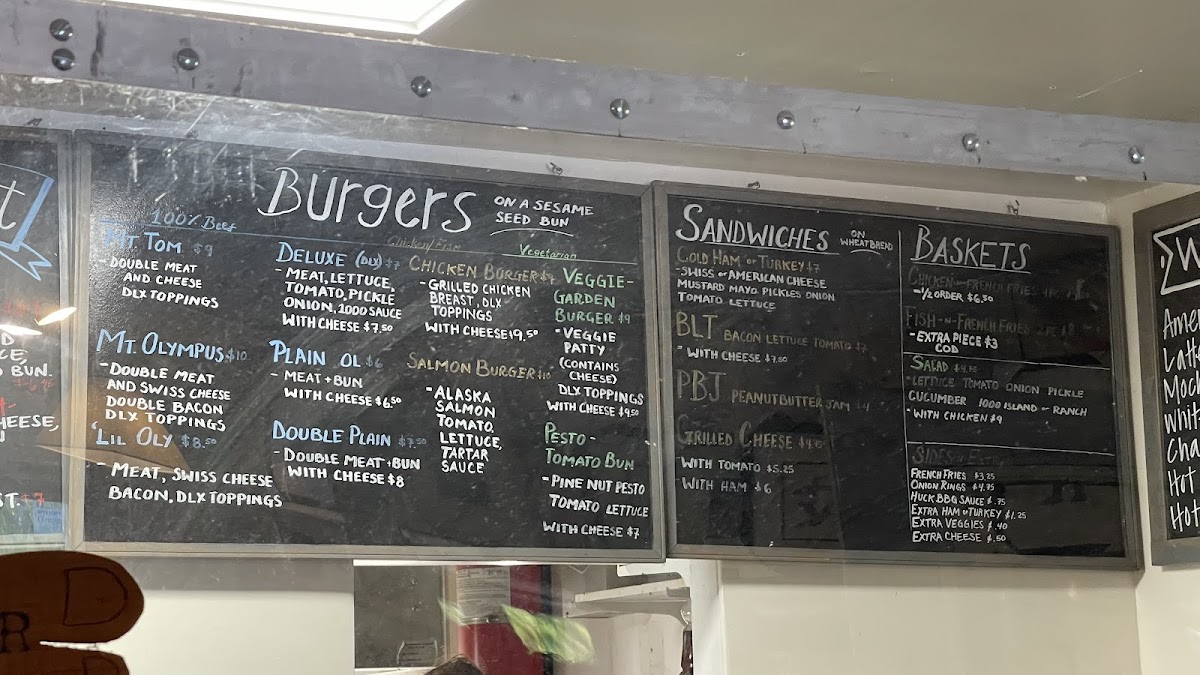 Burgers
ON A SESAME
SEED BUN
100% Beef
Chicken/Fish
Vegetarian
MT TOM $9
- DOUBLE MEAT
AND CHEESE
DLX TOPPINGS
MT. OLYMPUS $10.
- DOUBLE MEAT
AND SWISS CHEESE
DOUBLE BACON
DLX TOPPINGS
'LIL OLY $8.50
- MEAT, SWISS CHEESE
BACON, DLX TOPPINGS
DELUXE (DLX) $7
- MEAT, LETTUCE,
TOMATO, PICKLE
ONION, 1000 SAUCE
WITH CHEESE $7.50
PLAIN OL $6
- MEAT + BUN
WITH CHEESE $6.50
DOUBLE PLAIN $7.50
- DOUBLE MEAT + BUN
WITH CHEESE $8
CHICKEN BURGER $9
- GRILLED CHICKEN
BREAST, DLX
TOPPINGS
WITH CHEESE $9.50
SALMON BURGER $10
- ALASKA
SALMON
TOMATO,
LETTUCE,
TARTAR
SAUCE
VEGGIE-
GARDEN
BURGER $9
- VEGGIE
PATTY
(CONTAINS
CHEESE)
DLX TOPPINGS
WITH CHEESE $9.50
PESTO -
TOMATO BUN
- PINE NUT PESTO
TOMATO LETTUCE
WITH CHEESE $7
SANDWICHES
ON
WHEATBREAD
COLD HAM or TURKEY $7
- SWISS or AMERICAN CHEESE
MUSTARD MAYO PICKLES ONION
TOMATO LETTUCE
BLT BACON LETTUCE TOMATO $7
- WITH CHEESE $7.50
PBJ PEANUTBUTTER JAM $4
GRILLED CHEESE
- WITH TOMATO $5.25
- WITH HAM $6
BASKETS
CHICKEN -n- FRENCH FRIES
- 1/2 ORDER $6.50
FISH -N- FRENCH FRIES
- EXTRA PIECE $3
COD
SALAD
- LETTUCE TOMATO ONION PICKLE
CUCUMBER 1000 ISLAND or RANCH
- WITH CHICKEN $9
SIDES
FRENCH FRIES $3.25
ONION RINGS $4.75
HUCK BBQ SAUCE $.75
EXTRA HAM or TURKEY $1.25
EXTRA VEGGIES $.40
EXTRA CHEESE $.50